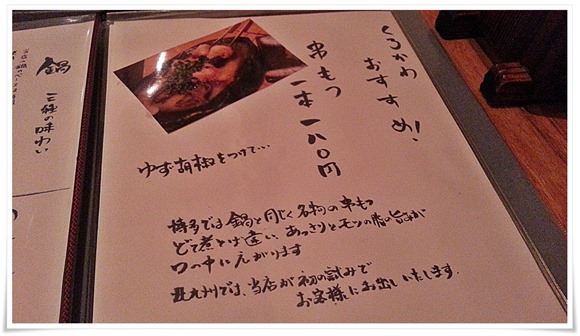 くろかわ
おすすめ!
串もつ
一本 一八〇円
ゆず胡椒をつけて…
博多では鍋と同じく名物の串もつ
どて煮とは違い、あっさりとモツの脂の旨味が
口の中に広がります
北九州では、当店が初の試みで
お客様にお出しいたします。
鍋
三種の味わい